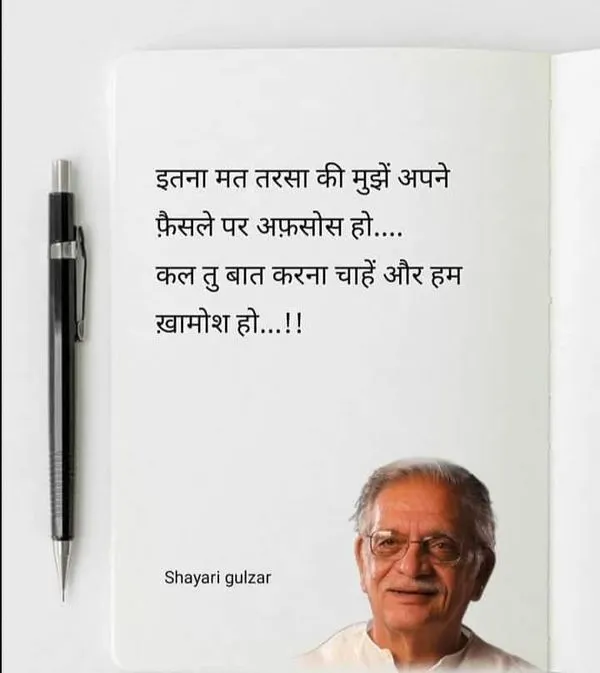 इतना मत तरसा की मुझें अपने
फ़ैसले पर अफ़सोस हो....
कल तु बात करना चाहें और हम
ख़ामोश हो...!!
Shayari gulzar